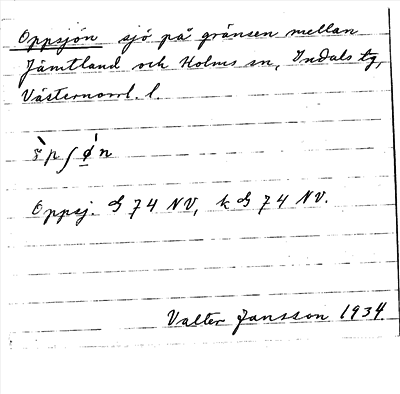 Oppsjön sjö på gränsen mellan
Jämtland och Holms sn, Indals tg,
Västernorrl. l.
pʃø̀n
Oppsj. G 74 NV, k G 74 NV.
Valter Jansson 1934.